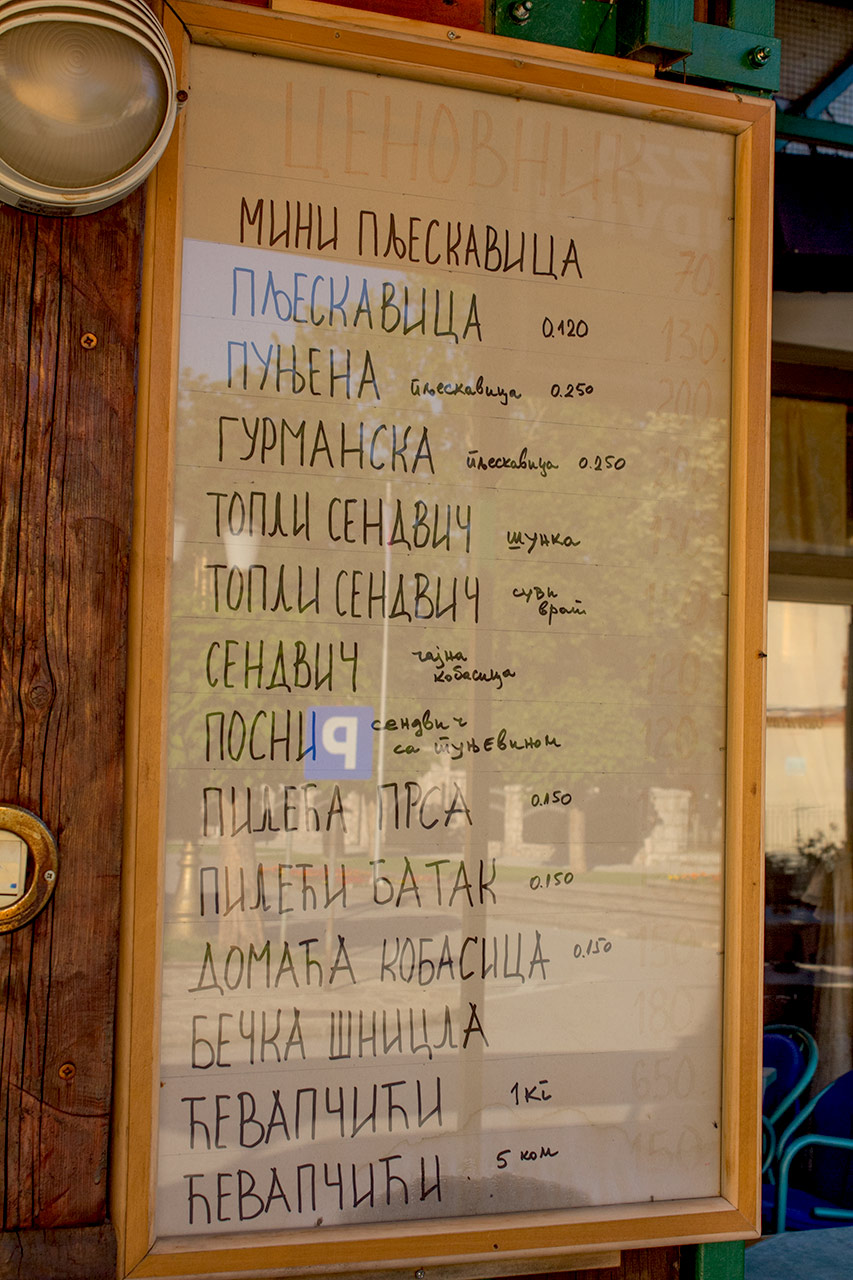 ЦЕНОВНИК
МИНИ ПЉЕСКАВИЦА 70.
ПЉЕСКАВИЦА 0.120 130.
ПУЊЕНА пљескавица 0.250 200
ГУРМАНСКА пљескавица 0.250
ТОПЛИ СЕНДВИЧ шунка
ТОПЛИ СЕНДВИЧ суви
врат
СЕНДВИЧ чајна
кобасица
ПОСНИ сендвич
са туњевином
ПИЛЕЋА ПРСА 0.150
ПИЛЕЋИ БАТАК 0.150
ДОМАЋА КОБАСИЦА 0.150
БЕЧКА ШНИЦЛА 180.
ЋЕВАПЧИЋИ 1кг 650
ЋЕВАПЧИЋИ 5 ком 150.
P